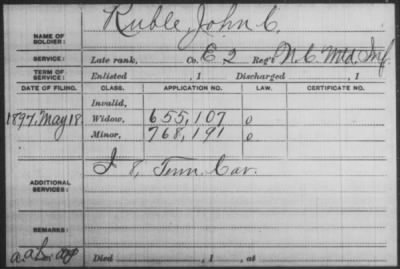 NAME OF SOLDIER: Ruble, John C.
SERVICE: Late rank, Co. E 2 Reg't N.C. Mtd. Inf.
TERM OF SERVICE: Enlisted , 1 Discharged , 1
DATE OF FILING. CLASS. APPLICATION NO. LAW. CERTIFICATE NO.
Invalid,
1897, May 18. Widow, 655,107 o
Minor, 768,191 o
ADDITIONAL SERVICES: I 8, Tenn. Cav.
REMARKS:
Died , 1 , at